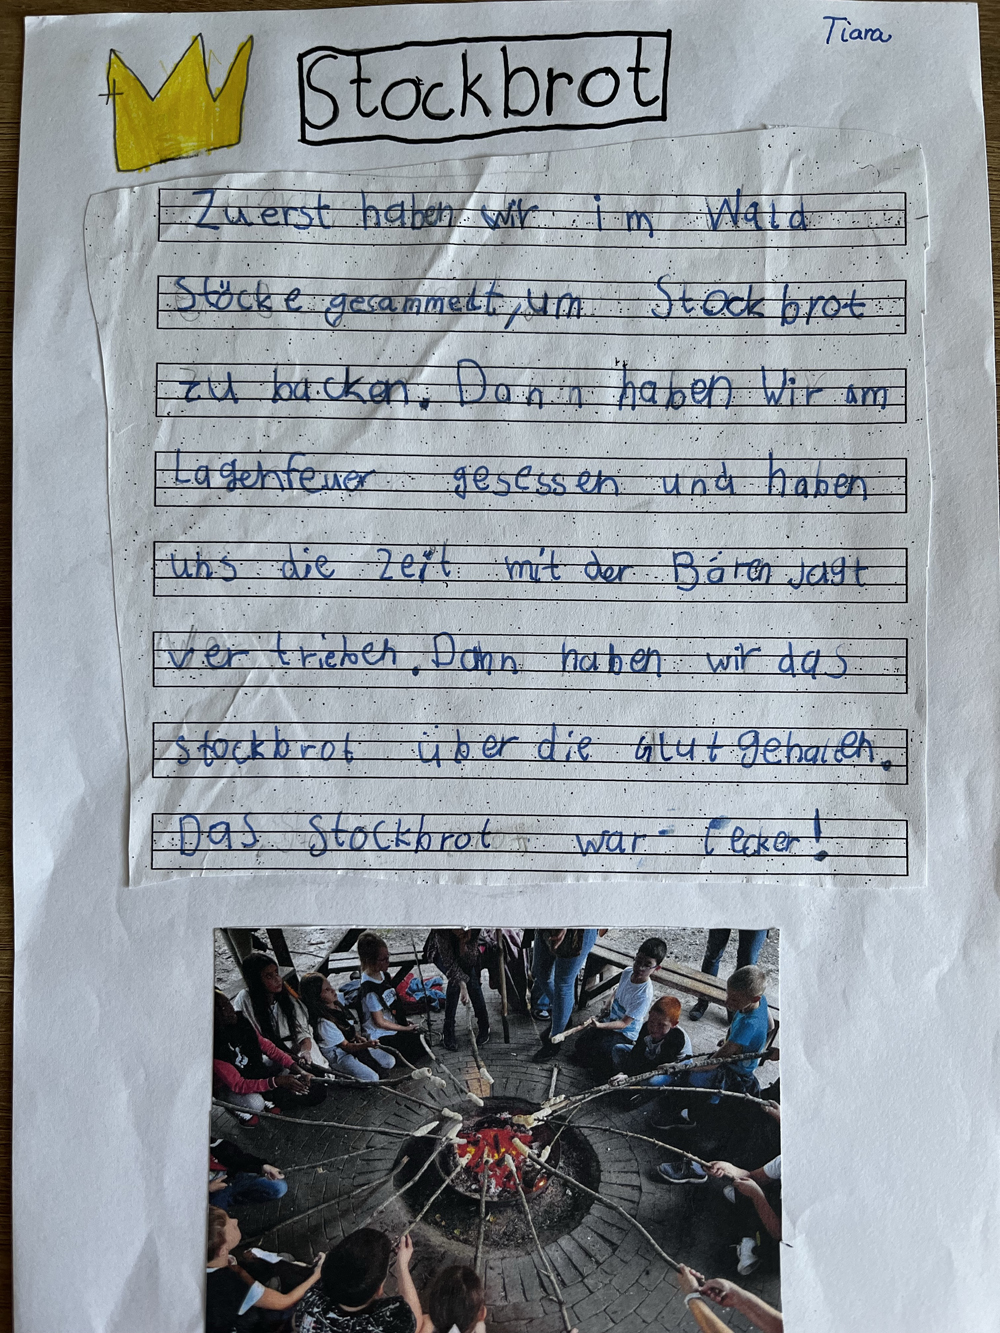 Tiara
Stockbrot
Zuerst haben wir im Wald
Stöcke gesammelt, um Stockbrot
zu backen. Dann haben Wir am
Lagerfeuer gesessen und haben
uns die Zeit mit der Bären jagt
Ver trieben. Dann haben wir das
stockbrot über die Glut gehalten.
Das Stockbrot war lecker!